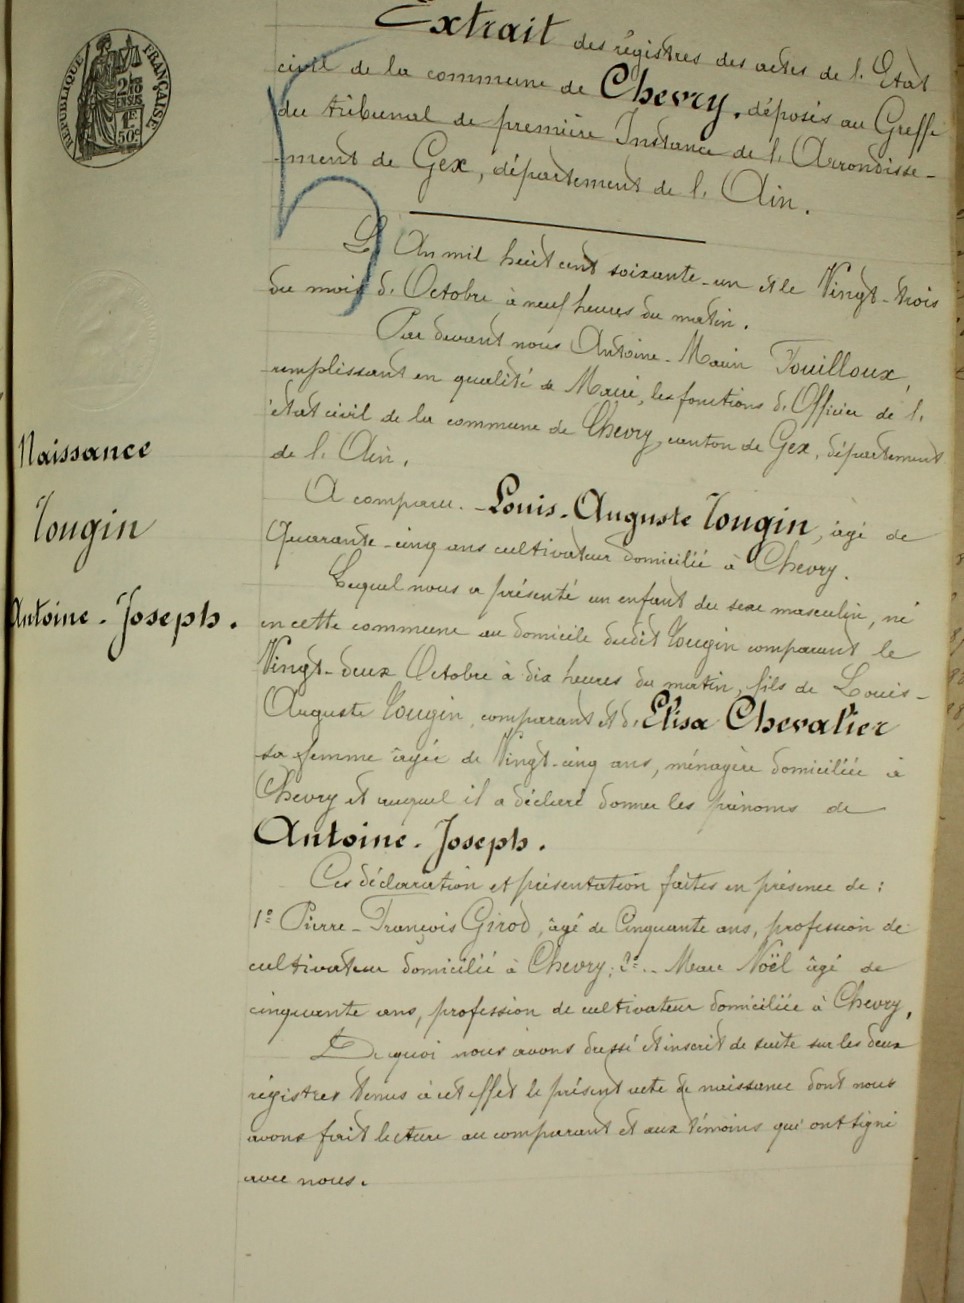 RÉPUBLIQUE FRANÇAISE
2/10
EN SUS
1F
50c
Extrait des régistres des actes de l'Etat
civil de la commune de Chevry, déposés au Greffe
du tribunal de première Instance de l'Arrondisse-
-ment de Gex, département de l'Ain.
L'An mil huit cent soixante-un et le Vingt-trois
du mois d'Octobre à neuf heures du matin.
Par devant nous Antoine-Marin Fouilloux,
remplissant en qualité de Maire, les fonctions d'Officier de l'
état civil de la commune de Chevry, canton de Gex, département
de l'Ain,
Naissance
Tougin
Antoine-Joseph.
A comparu. - Louis-Auguste Tougin, âgé de
Quarante-cinq ans cultivateur domicilié à Chevry.
Lequel nous a présenté un enfant du sexe masculin, né
en cette commune au domicile dudit Tougin comparant le
Vingt-deux Octobre à dix heures du matin, fils de Louis-
Auguste Tougin, comparant et d'Elisa Chevalier
sa femme âgée de Vingt-cinq ans, ménagère domiciliée à
Chevry et auquel il a déclaré donner les prénoms de
Antoine-Joseph.
Ces déclaration et présentation faites en présence de :
1º Pierre-François Girod, âgé de Cinquante ans, profession de
cultivateur domicilié à Chevry; 2º.. Marc Noël âgé de
cinquante ans, profession de cultivateur domiciliée à Chevry,
De quoi nous avons dressé et inscrit de suite sur les deux
régistres tenus à cet effet le présent acte de naissance dont nous
avons fait lecture au comparant et aux témoins qui ont signé
avec nous.